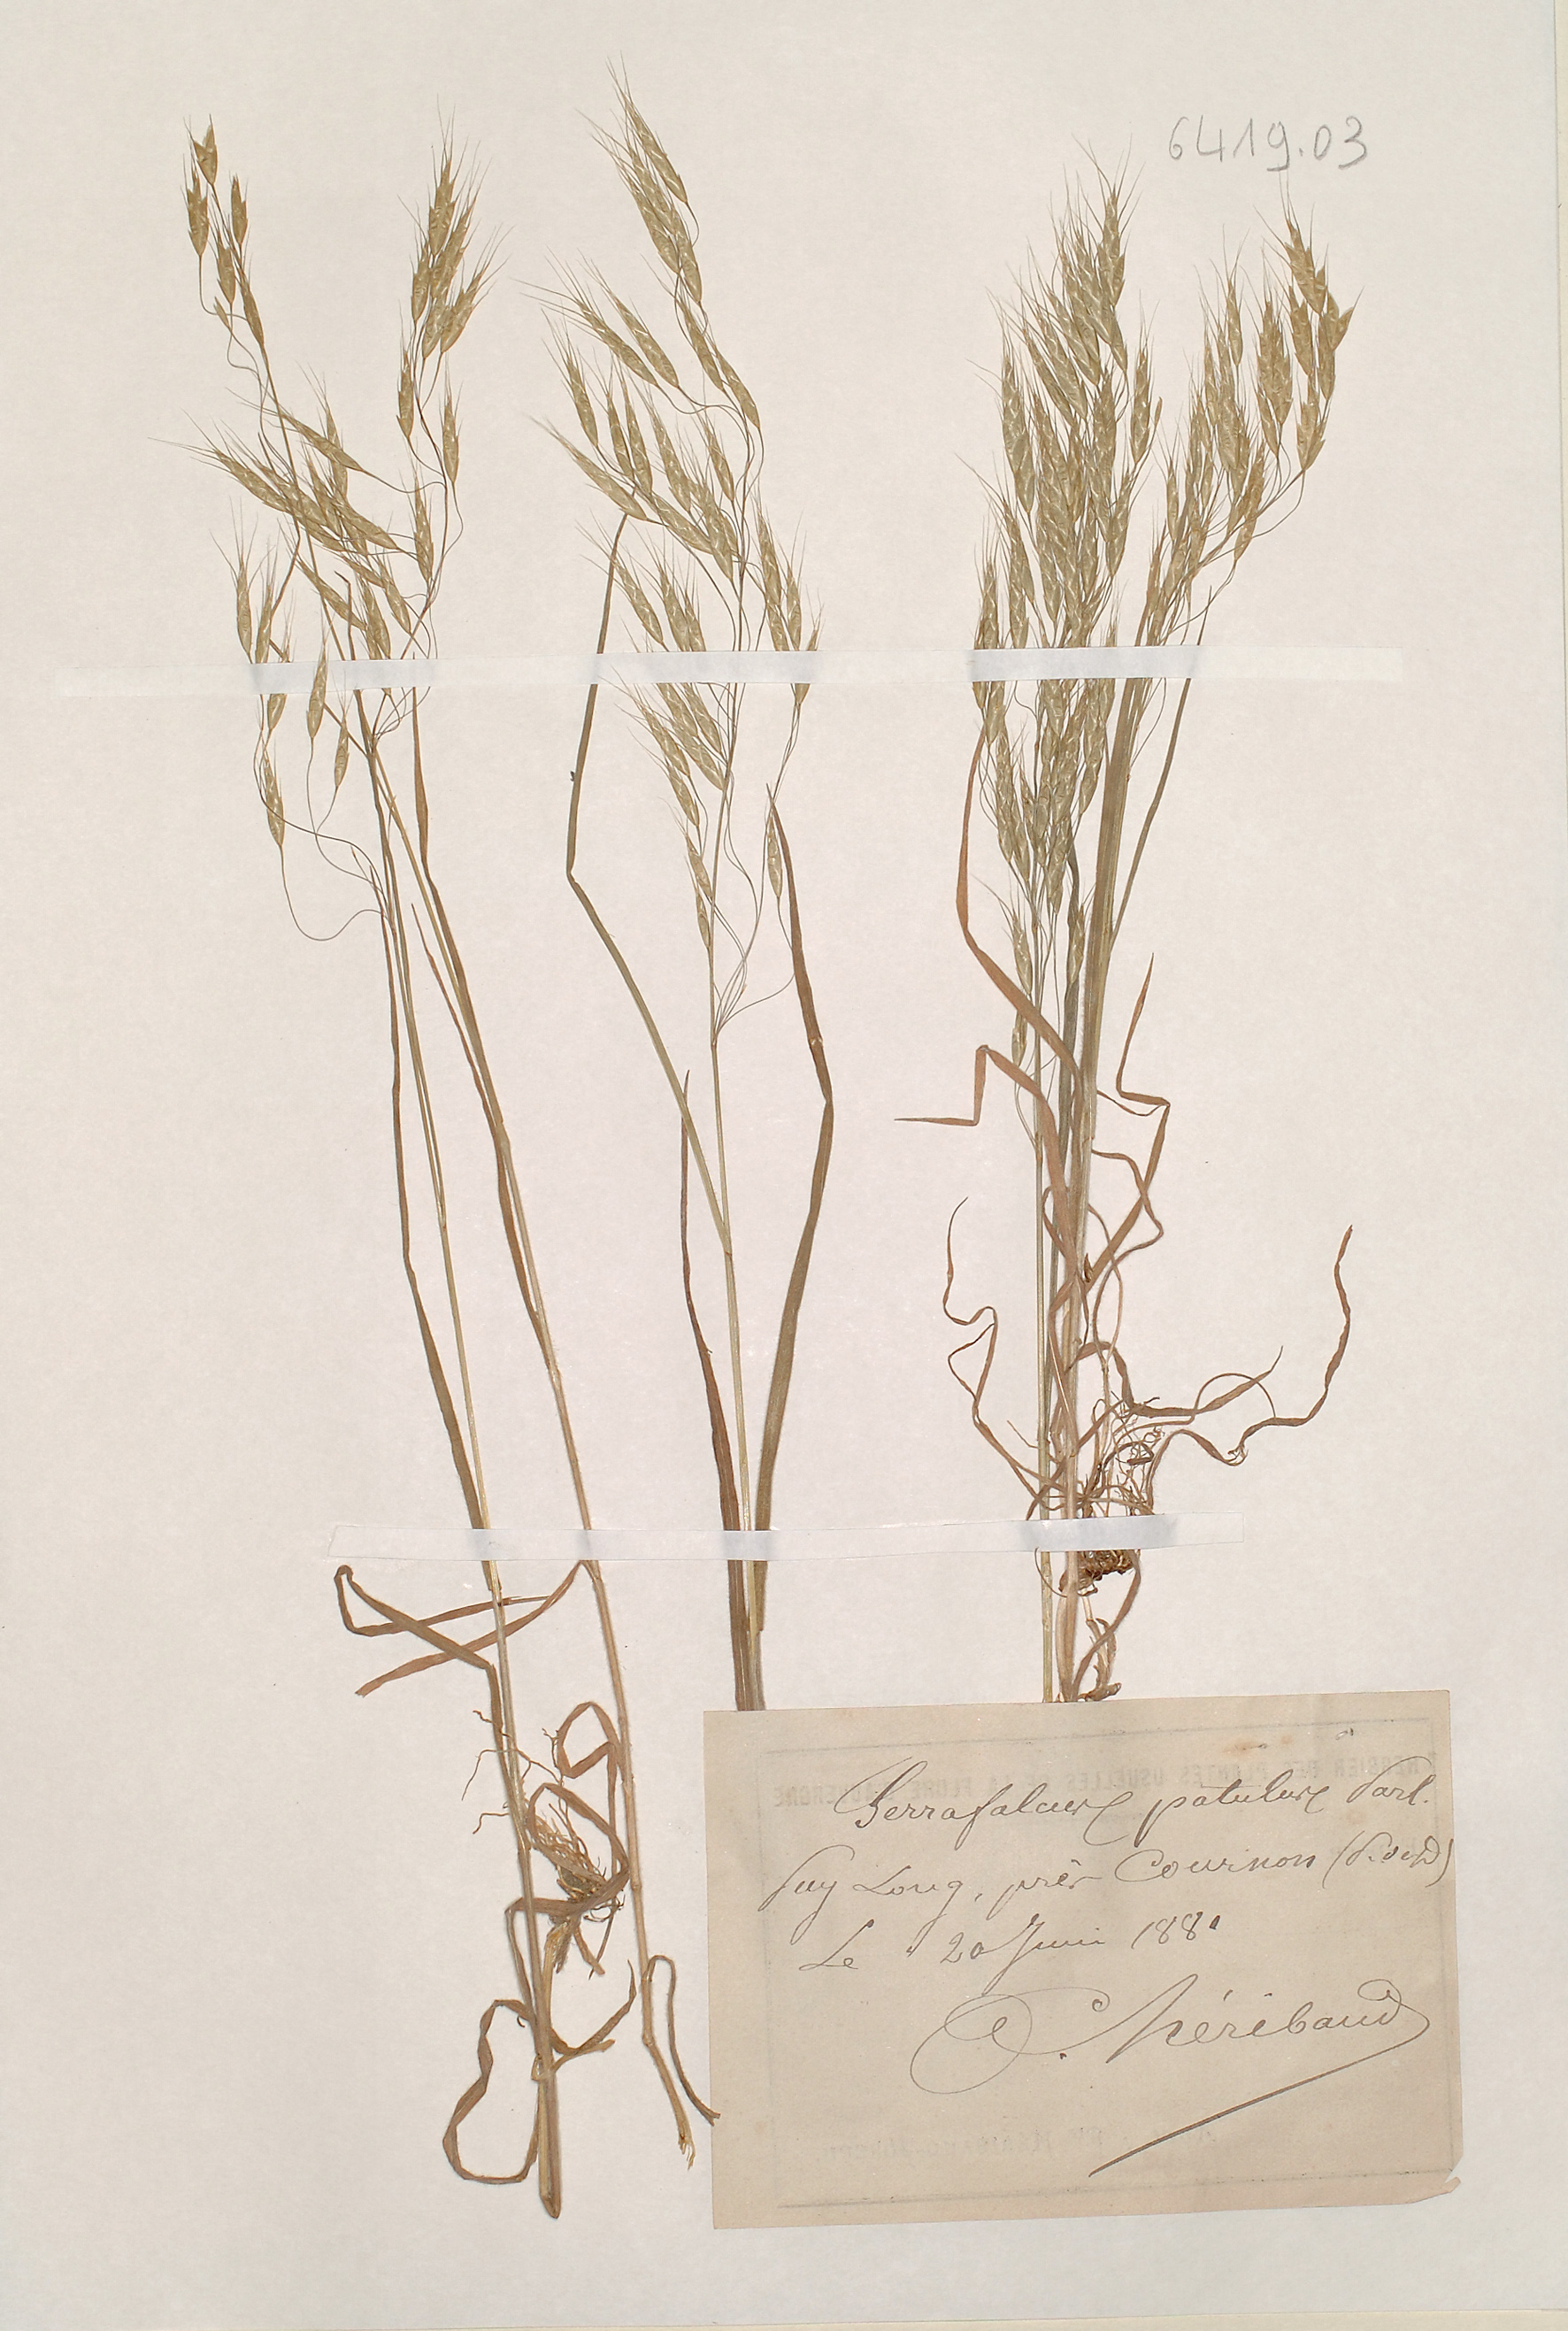 6419.03
Serrafalcus patulus Parl.
Puy Long, près Cournon (P.-de-D)
Le 20 Juin 1880
Héribaud
HERBIER DES PLANTES USUELLES DE LA FLORE D'AUVERGNE